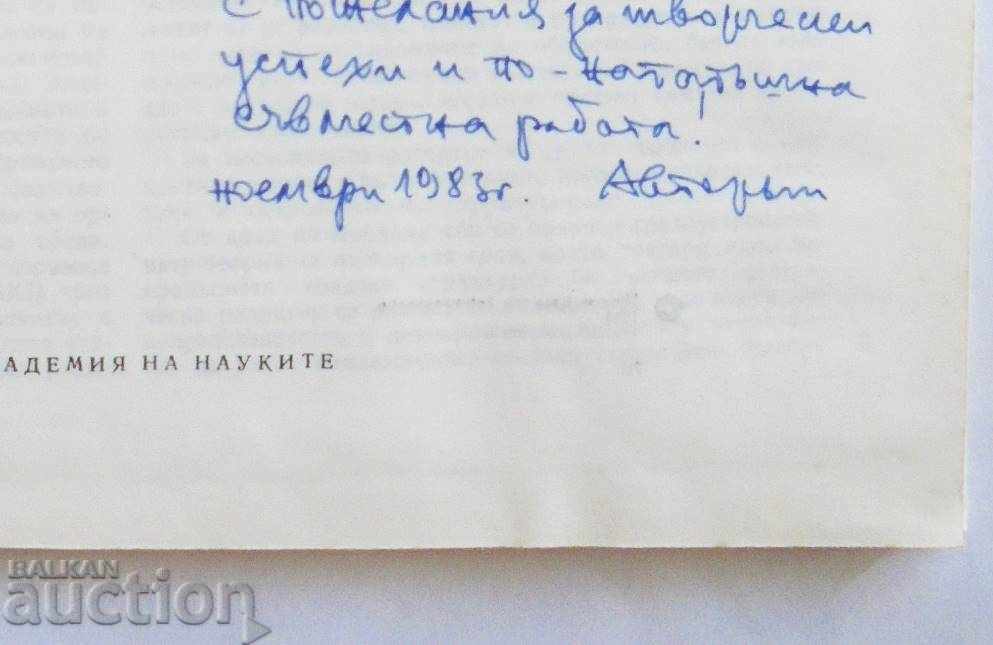 с пожелания за творчески
успехи и по-нататъшна
съвместна работа!
ноември 1983 г. Авторът
АДЕМИЯ НА НАУКИТЕ
BALKAN
auction